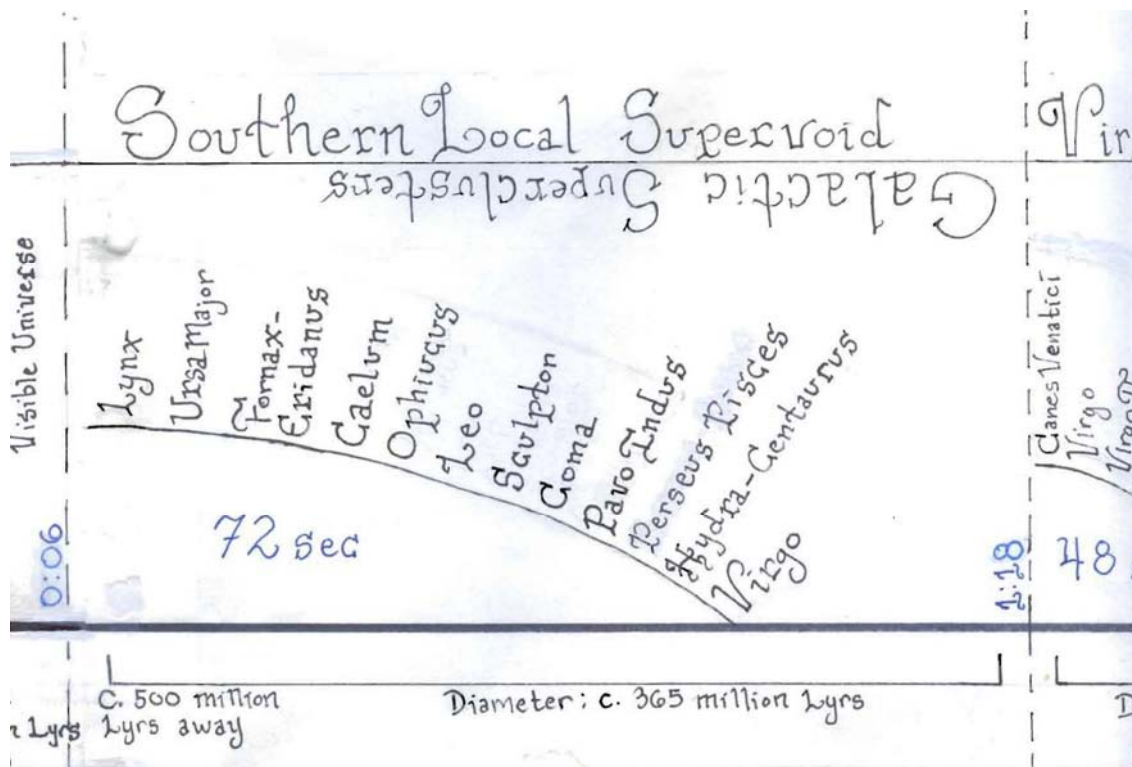 Southern Local Supervoid
Vir
Galactic Superclusters
Visible Universe
Lynx
Ursa Major
Fornax-
Eridanus
Caelum
Ophiucus
Leo
Sculptor
Coma
Pavo Indus
Perseus Pisces
Hydra-Centaurus
Virgo
Canes Venatici
Virgo
0:06
72 sec
1:18
48
C. 500 million
Lyrs away
Diameter: c. 365 million Lyrs
Lyrs